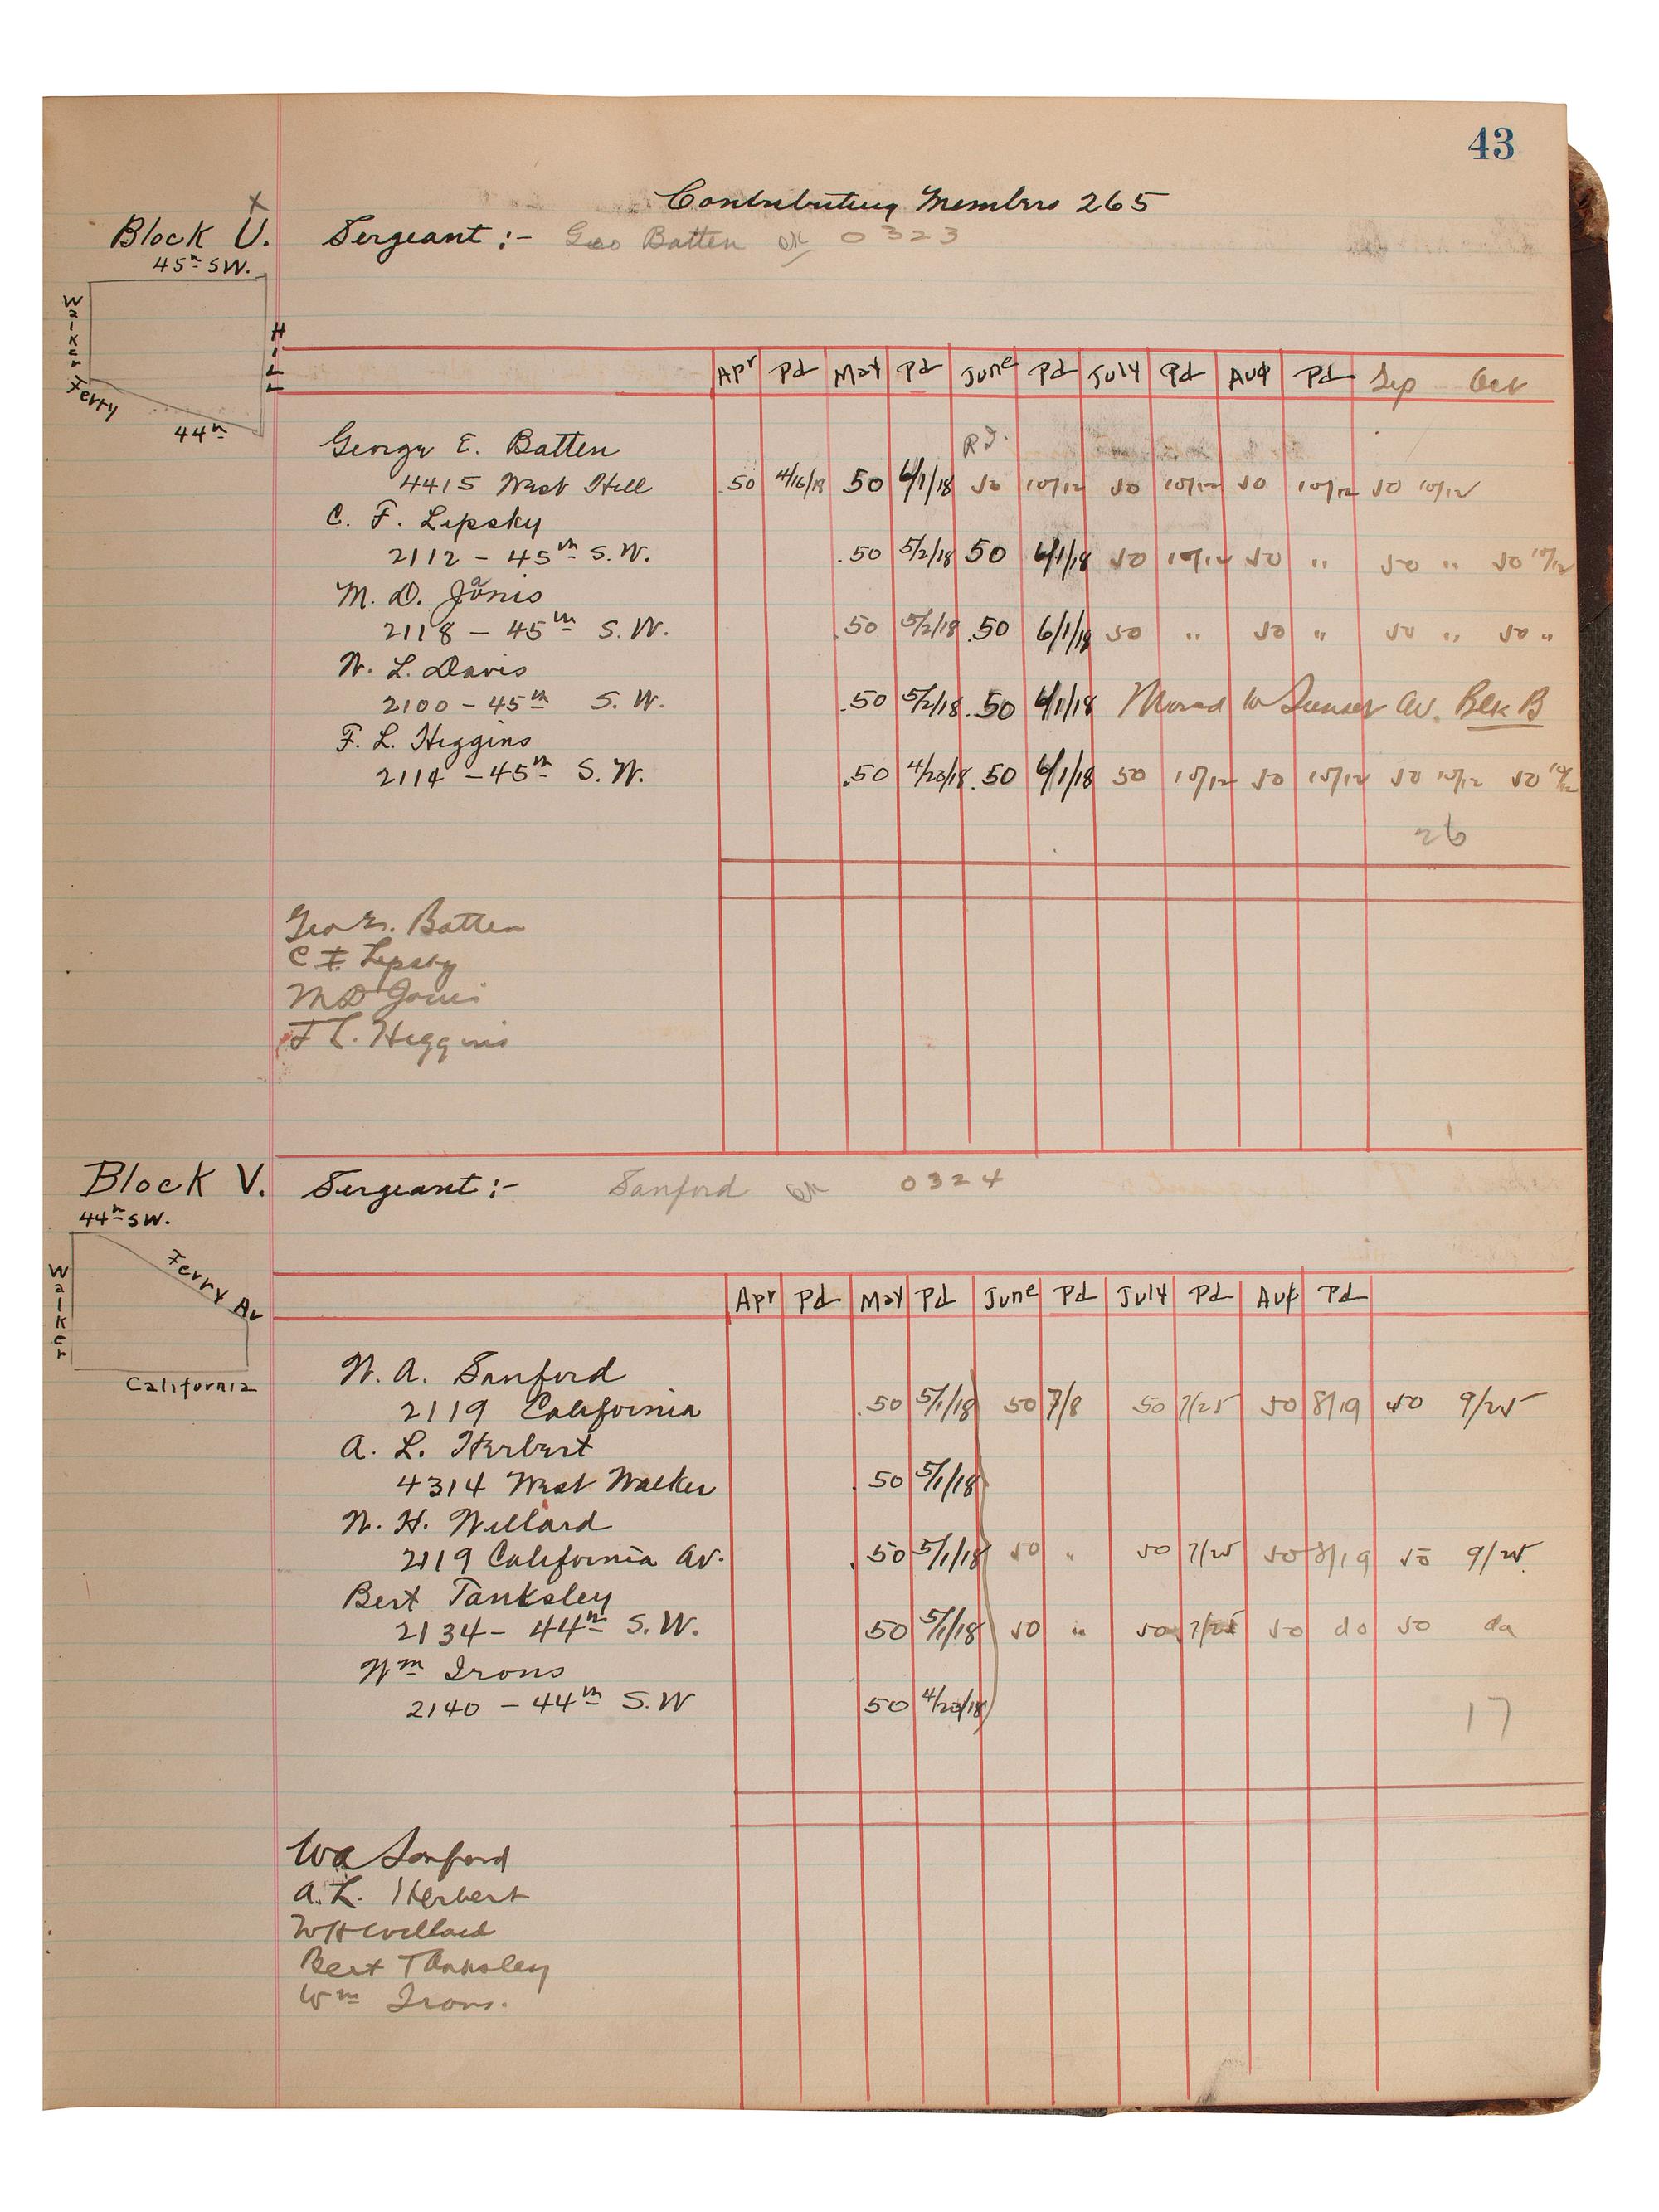 43
Contributing Members 265
x
Block U. Sergeant :- Geo Batten OK 0323
45th SW.
Walker
Hill
Ferry
44th
Apr Pd May Pd June Pd July Pd Aug Pd Sep Oct
George E. Batten
4415 West Hill .50 4/16/18 50 6/1/18 50 10/12 50 10/12 50 10/12 50 10/12
C. F. Lipsky
2112 - 45th S.W. .50 5/2/18 50 6/1/18 50 10/12 50 " 50 " 50 10/12
M. D. Janis
2118 - 45th S.W. .50 5/2/18 .50 6/1/18 50 " 50 " 50 " 50 "
W. L. Davis
2100 - 45th S.W. .50 5/2/18 .50 6/1/18 Moved to Sunset Av. Blk B
F. L. Higgins
2114 - 45th S.W. .50 4/23/18 .50 6/1/18 50 10/12 50 10/12 50 10/12 50 10/12
26
Geo E. Batten
C F Lipsky
M D Janis
F L. Higgins
Block V. Sergeant :- Sanford OK 0324
44th SW.
Walker
Ferry Av
California
Apr Pd May Pd June Pd July Pd Aug Pd
W. A. Sanford
2119 California .50 5/1/18 50 7/8 50 7/25 50 8/19 50 9/25
A. L. Herbert
4314 West Walker .50 5/1/18
W. H. Willard
2119 California Av. .50 5/1/18 50 " 50 7/25 50 8/19 50 9/25
Bert Tanksley
2134 - 44th S.W. 50 5/1/18 50 " 50 7/25 50 do 50 do
Wm Irons
2140 - 44th S.W 50 4/23/18
17
W A Sanford
A. L. Herbert
W H Willard
Bert Tanksley
Wm Irons.